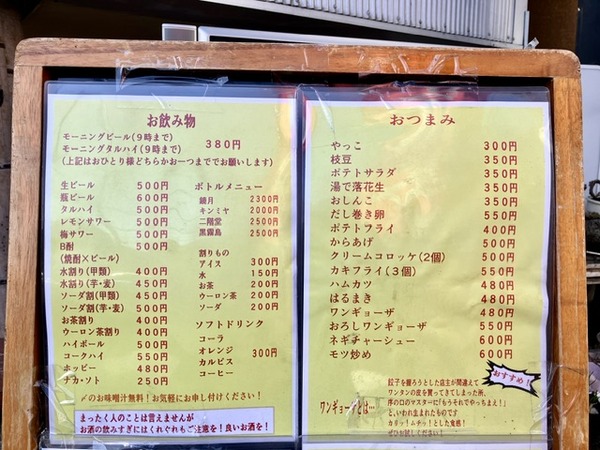 お飲み物
モーニングビール(9時まで)
モーニングタルハイ(9時まで) 380円
(上記はおひとり様どちらかお一つまででお願いします)
生ビール 500円
瓶ビール 600円
タルハイ 500円
レモンサワー 500円
梅サワー 500円
B酎 550円
(焼酎×ビール)
水割り(甲類) 400円
水割り(芋・麦) 450円
ソーダ割(甲類) 450円
ソーダ割(芋・麦) 500円
お茶割り 400円
ウーロン茶割り 400円
ハイボール 500円
コークハイ 550円
ホッピー 480円
ナカ・ソト 250円
ボトルメニュー
鏡月 2300円
キンミヤ 2000円
二階堂 2500円
黒霧島 2500円
割りもの
アイス 300円
水 150円
お茶 200円
ウーロン茶 200円
ソーダ 200円
ソフトドリンク
コーラ
オレンジ 300円
カルピス
コーヒー
〆のお味噌汁無料!お気軽にお申し付けください!
まったく人のことは言えませんが
お酒の飲みすぎにはくれぐれもご注意を!良いお酒を!
おつまみ
やっこ 300円
枝豆 350円
ポテトサラダ 350円
湯で落花生 350円
おしんこ 350円
だし巻き卵 550円
ポテトフライ 400円
からあげ 500円
クリームコロッケ(2個) 500円
カキフライ(3個) 550円
ハムカツ 480円
はるまき 480円
ワンギョーザ 480円
おろしワンギョーザ 550円
ネギチャーシュー 600円
モツ炒め 600円
おすすめ!
ワンギョーザとは…
餃子を握ろうとした店主が間違えて
ワンタンの皮を買ってきてしまった所、
序の口のマスターに「もうそれでやっちまえ!」
と、いわれ生まれたものです
カリッ!ムチッ!とした食感!
ぜひお試しください!